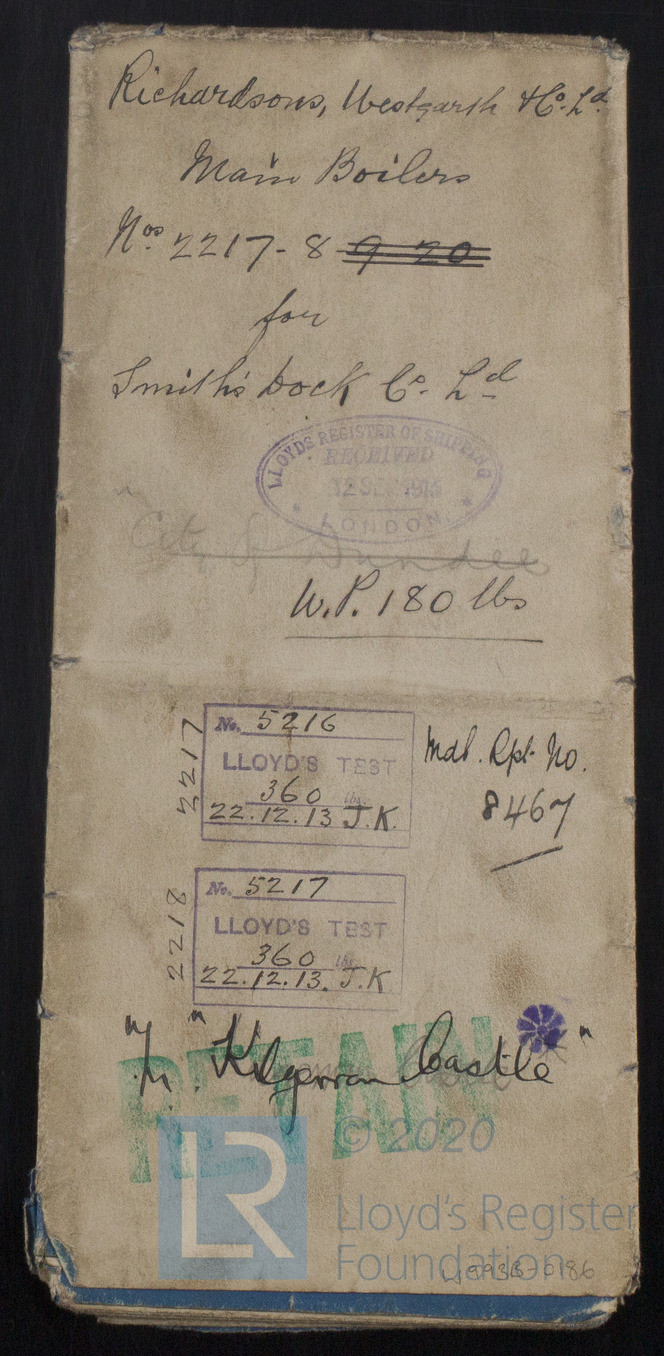 Richardsons, Westgarth & Co. Ld.
Main Boilers
Nos. 2217-8 9 20
for
Smith's Dock Co. Ld
LLOYDS REGISTER OF SHIPPING
RECEIVED
LONDON.
City of Dundee
W.P. 180 lbs
2217
No. 5216
LLOYD'S TEST
360 lbs.
22.12.13 J.K.
Mdl. Rpt. No.
8467
2218
No. 5217
LLOYD'S TEST
360 lbs.
22.12.13. J.K
"Kilgerran Castle"
RETAIN
LR
© 2020
Lloyd's Register
Foundation